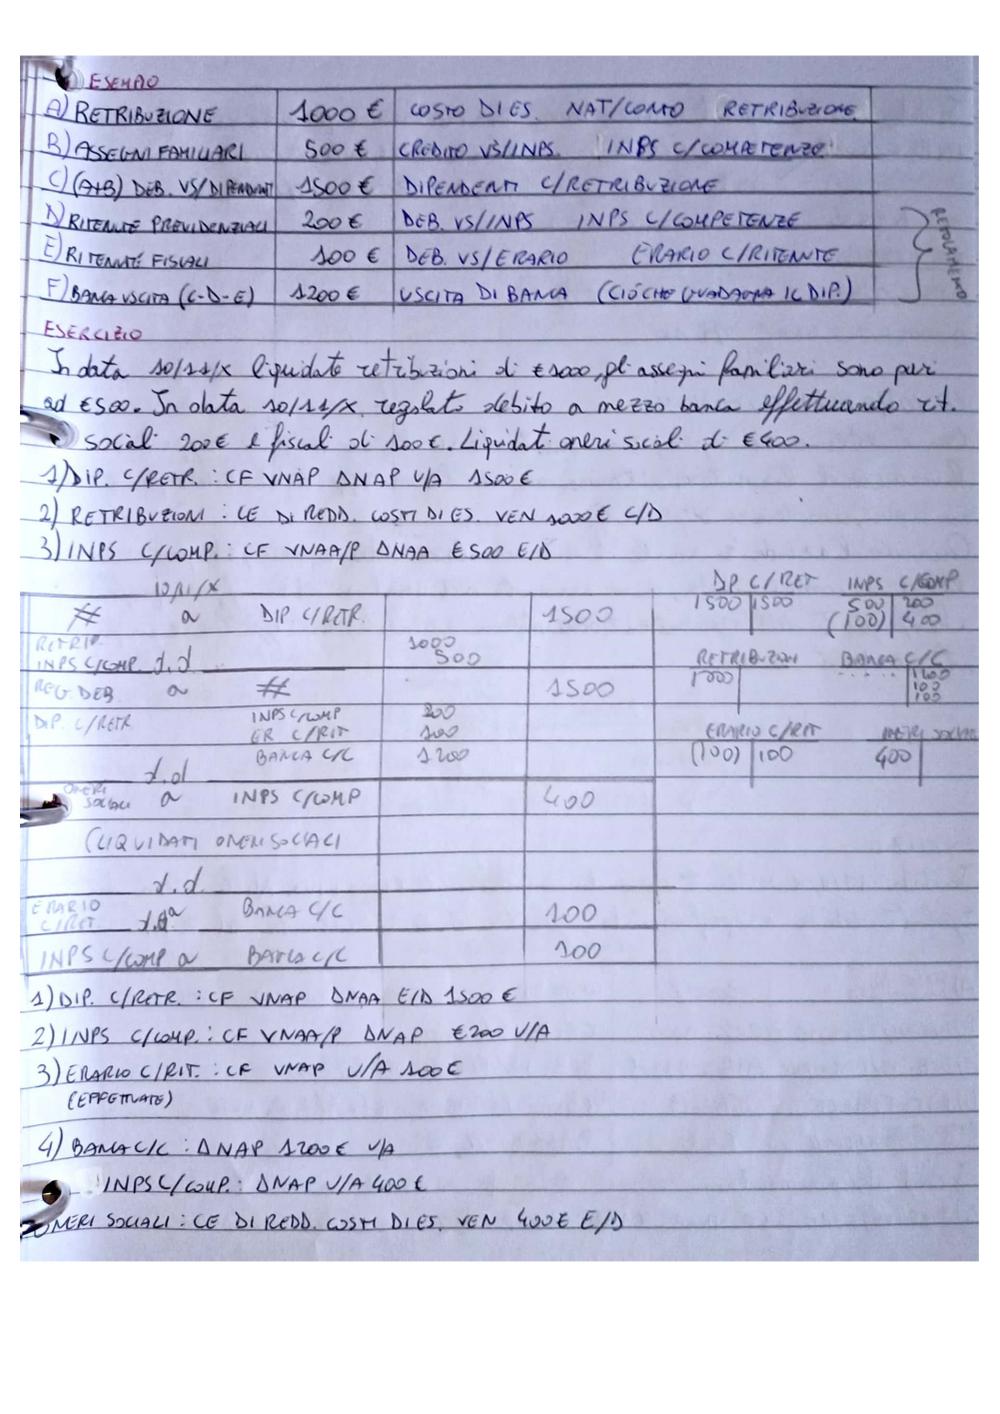 ESEMPIO
A) RETRIBUZIONE 1000 € COSTO DI ES. NAT/CONTO RETRIBUZIONE
B) ASSEGNI FAMILIARI 500 € CREDITO VS/INPS. INPS C/COMPETENZE
C) (A+B) DEB. VS/DIPENDENTI 1500 € DIPENDENTI C/RETRIBUZIONE
D) RITENUTE PREVIDENZIALI 200 € DEB. VS/INPS INPS C/COMPETENZE
E) RITENUTE FISCALI 100 € DEB. VS/ERARIO ERARIO C/RITENUTE
F) BANCA USCITA (C-D-E) 1200 € USCITA DI BANCA (CIÒ CHE GUADAGNA IL DIP.)
REGOLAMENTO
ESERCIZIO
In data 10/11/X liquidate retribuzioni di €1000, gli assegni familiari sono pari
ad €500. In data 10/11/X, regolato debito a mezzo banca effettuando rit.
sociali 200€ e fiscali di 100€. Liquidati oneri sociali di €400.
1) DIP. C/RETR. : CF VNAP ΔNAP U/A 1500€
2) RETRIBUZIONI : CE DI REDD. COSTI DI ES. VEN 1000€ C/D
3) INPS C/COMP. : CF VNAA/P ΔNAA €500 E/D
10/11/X
# a DIP C/RETR. 1500
RETRIB. 1000
INPS C/COMP. d.d 500
REG. DEB a # 1500
DIP. C/RETR INPS C/COMP 200
ER C/RIT 100
BANCA C/C 1200
d.d
ONERI SOCIALI a INPS C/COMP 400
(LIQUIDATI ONERI SOCIALI
d.d
ERARIO C/RIT. a BANCA C/C 100
INPS C/COMP a BANCA C/C 100
DIP C/RET INPS C/COMP
1500 1500 500 200
(100) 400
RETRIBUZIONI BANCA C/C
1000 ..... 1200
100
100
ERARIO C/RIT ONERI SOCIALI
(100) 100 400
1) DIP. C/RETR. : CF VNAP ΔNAA E/D 1500 €
2) INPS C/COMP. : CF VNAA/P ΔNAP €200 U/A
3) ERARIO C/RIT. : CF VNAP U/A 100€
(EFFETTUATE)
4) BANCA C/C : ΔNAP 1200€ U/A
INPS C/COMP. : ΔNAP U/A 400€
ONERI SOCIALI : CE DI REDD. COSTI DI ES. VEN 400€ E/D